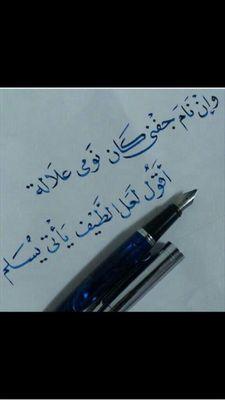 وإنْ نَامَ جَفْني كَان نَومي علَالة
أقُولُ لعَل الطَيفَ يَأتي يُسَلم